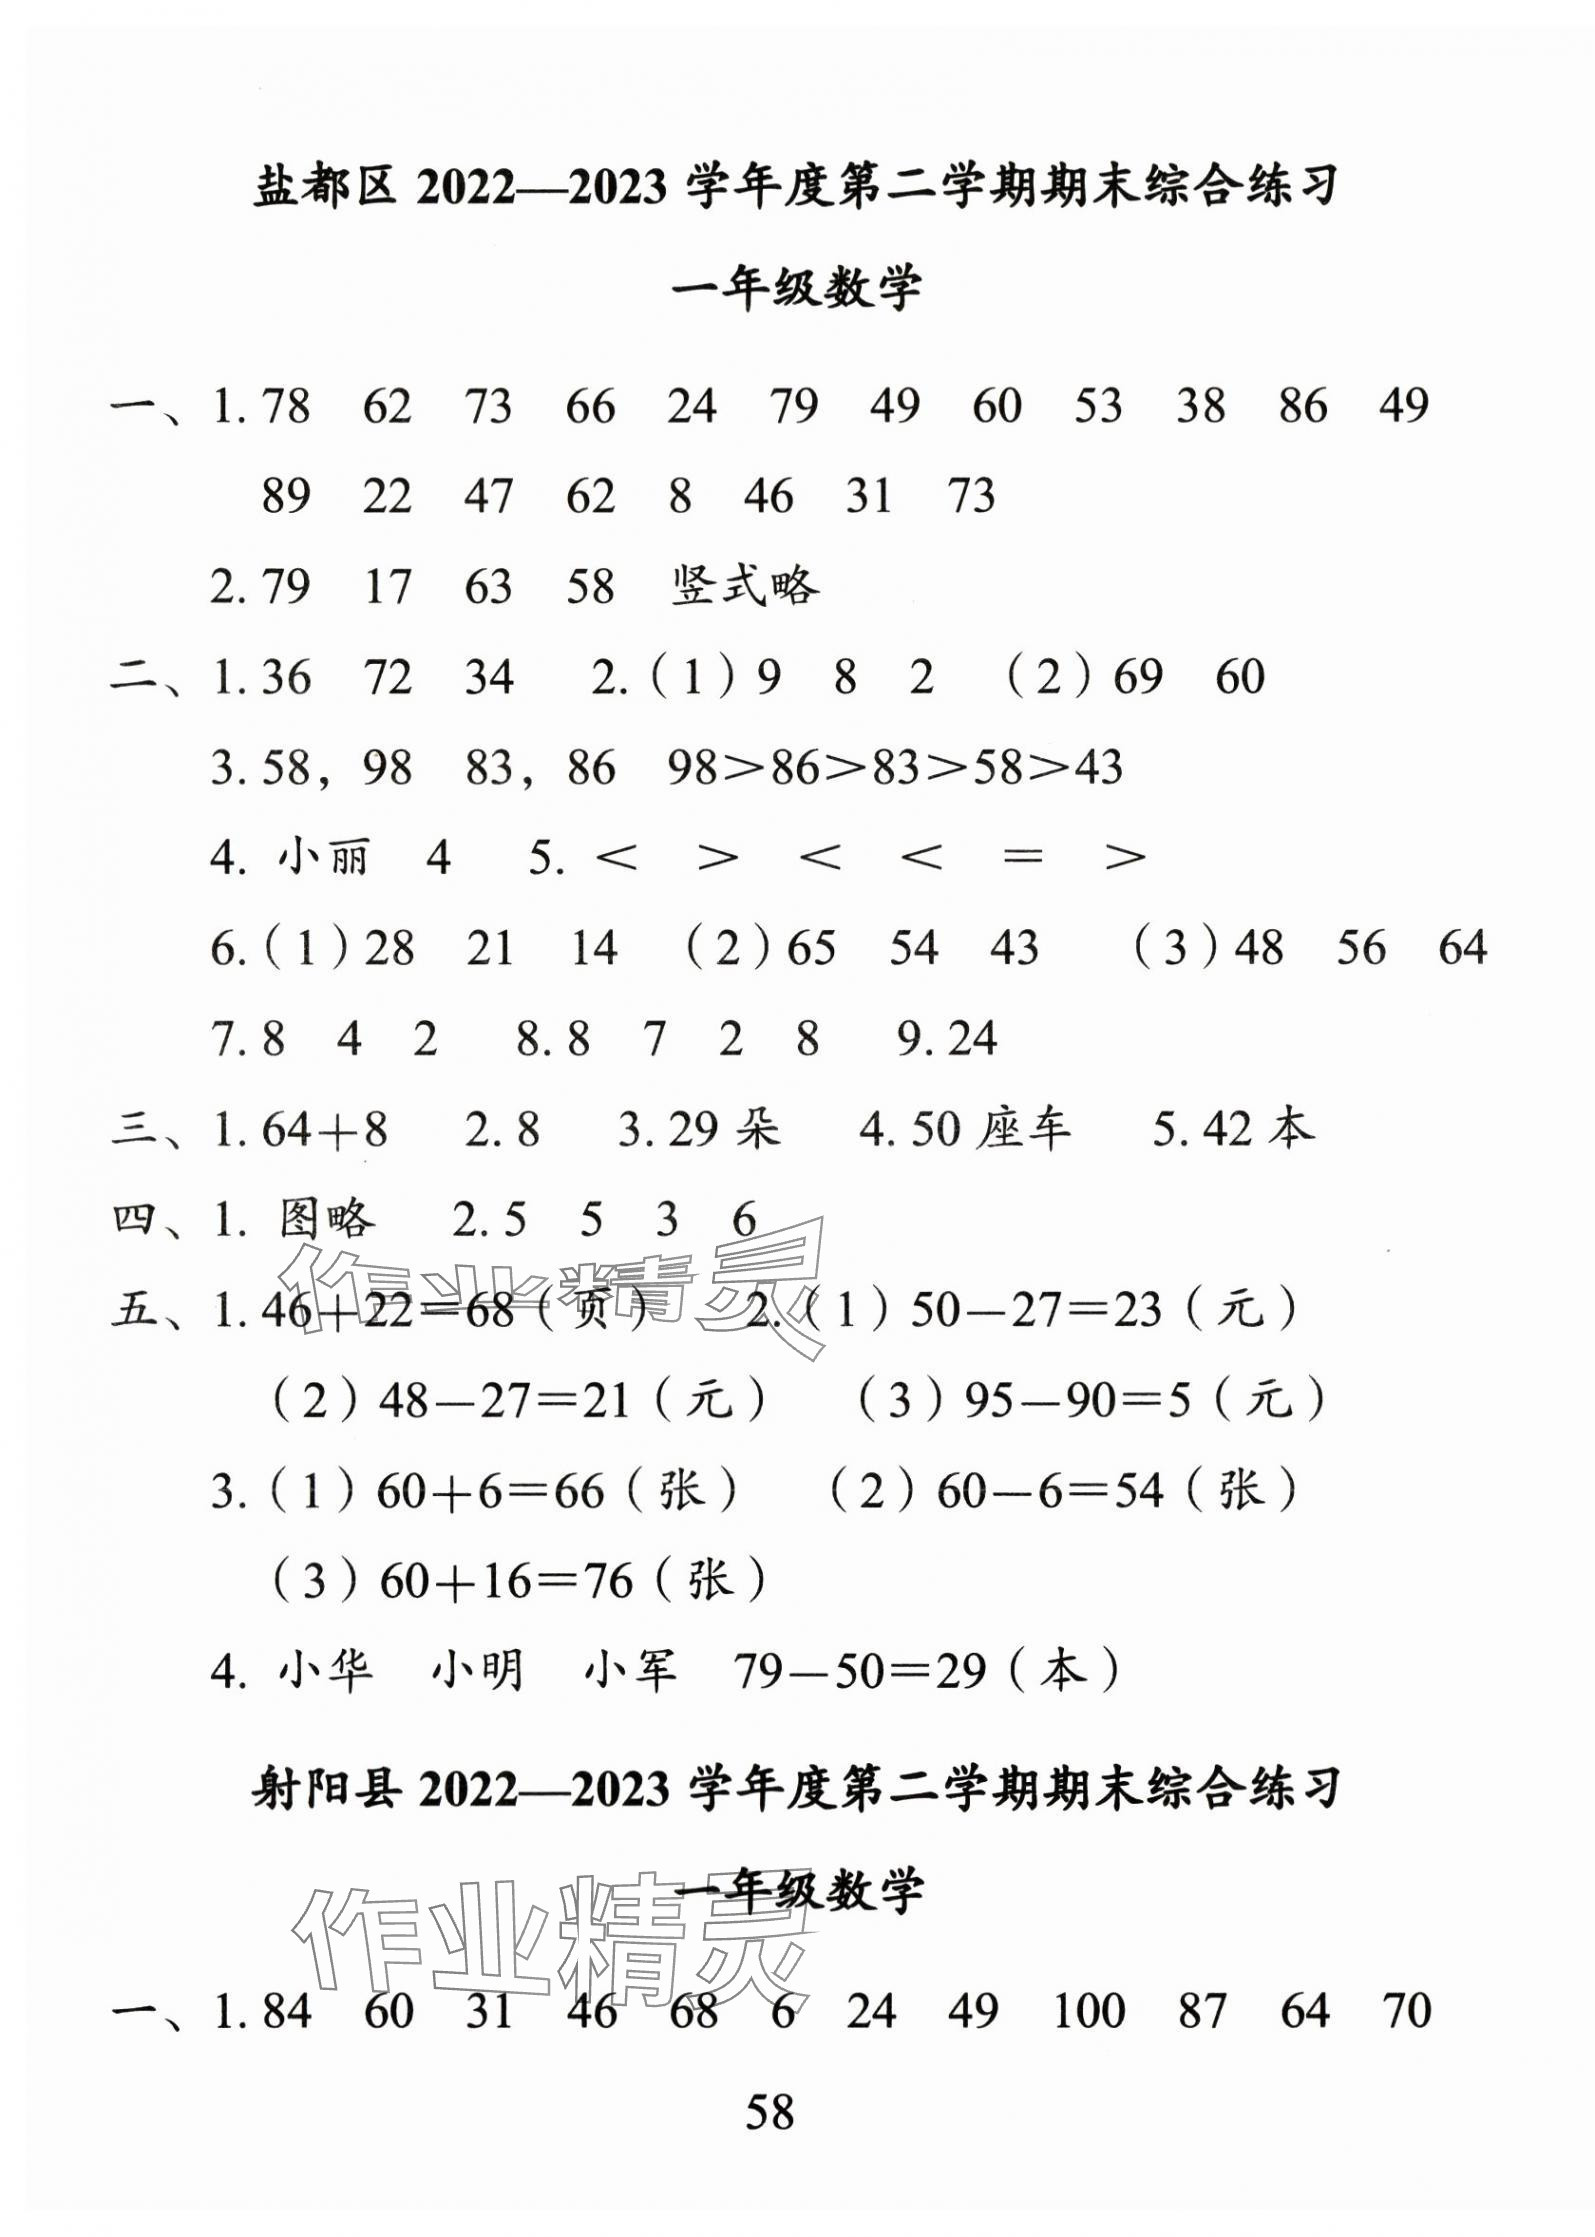 盐都区 2022—2023 学年度第二学期期末综合练习
一年级数学
一、1. 78 62 73 66 24 79 49 60 53 38 86 49
89 22 47 62 8 46 31 73
2. 79 17 63 58 竖式略
二、1. 36 72 34 2.（1）9 8 2 （2）69 60
3. 58，98 83，86 98＞86＞83＞58＞43
4. 小丽 4 5. ＜ ＞ ＜ ＜ ＝ ＞
6.（1）28 21 14 （2）65 54 43 （3）48 56 64
7. 8 4 2 8. 8 7 2 8 9. 24
三、1. 64＋8 2. 8 3. 29 朵 4. 50 座车 5. 42 本
四、1. 图略 2. 5 5 3 6
五、1. 46＋22＝68（页） 2.（1）50－27＝23（元）
（2）48－27＝21（元） （3）95－90＝5（元）
3.（1）60＋6＝66（张） （2）60－6＝54（张）
（3）60＋16＝76（张）
4. 小华 小明 小军 79－50＝29（本）
作业精灵
射阳县 2022—2023 学年度第二学期期末综合练习
一年级数学
作业精灵
一、1. 84 60 31 46 68 6 24 49 100 87 64 70
58